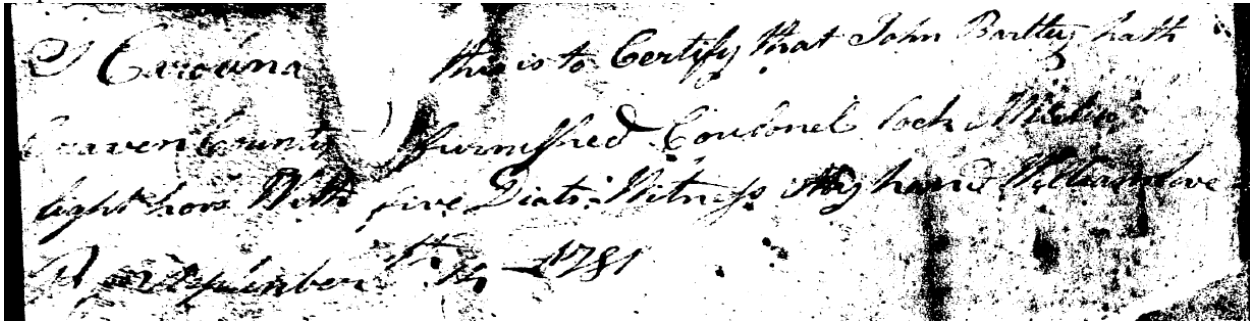 S Carolina this is to Certify that John Bartley hath
Craven County furnished Coulonel Lock Militia
light hors With five Diats Witness My hand William love
September th 1781